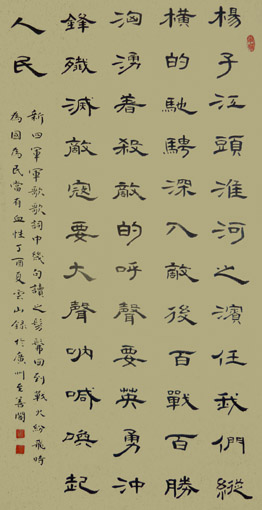 楊子江頭淮河之濱任我們縱
橫的馳騁深入敵後百戰百勝
洶湧着殺敵的呼聲要英勇沖
鋒殲滅敵寇要大聲吶喊喚起
人民
新四軍軍歌歌詞中幾句讀之髣髴回到戰火紛飛時
為國為民當有血性丁酉夏雲山錄於廣州